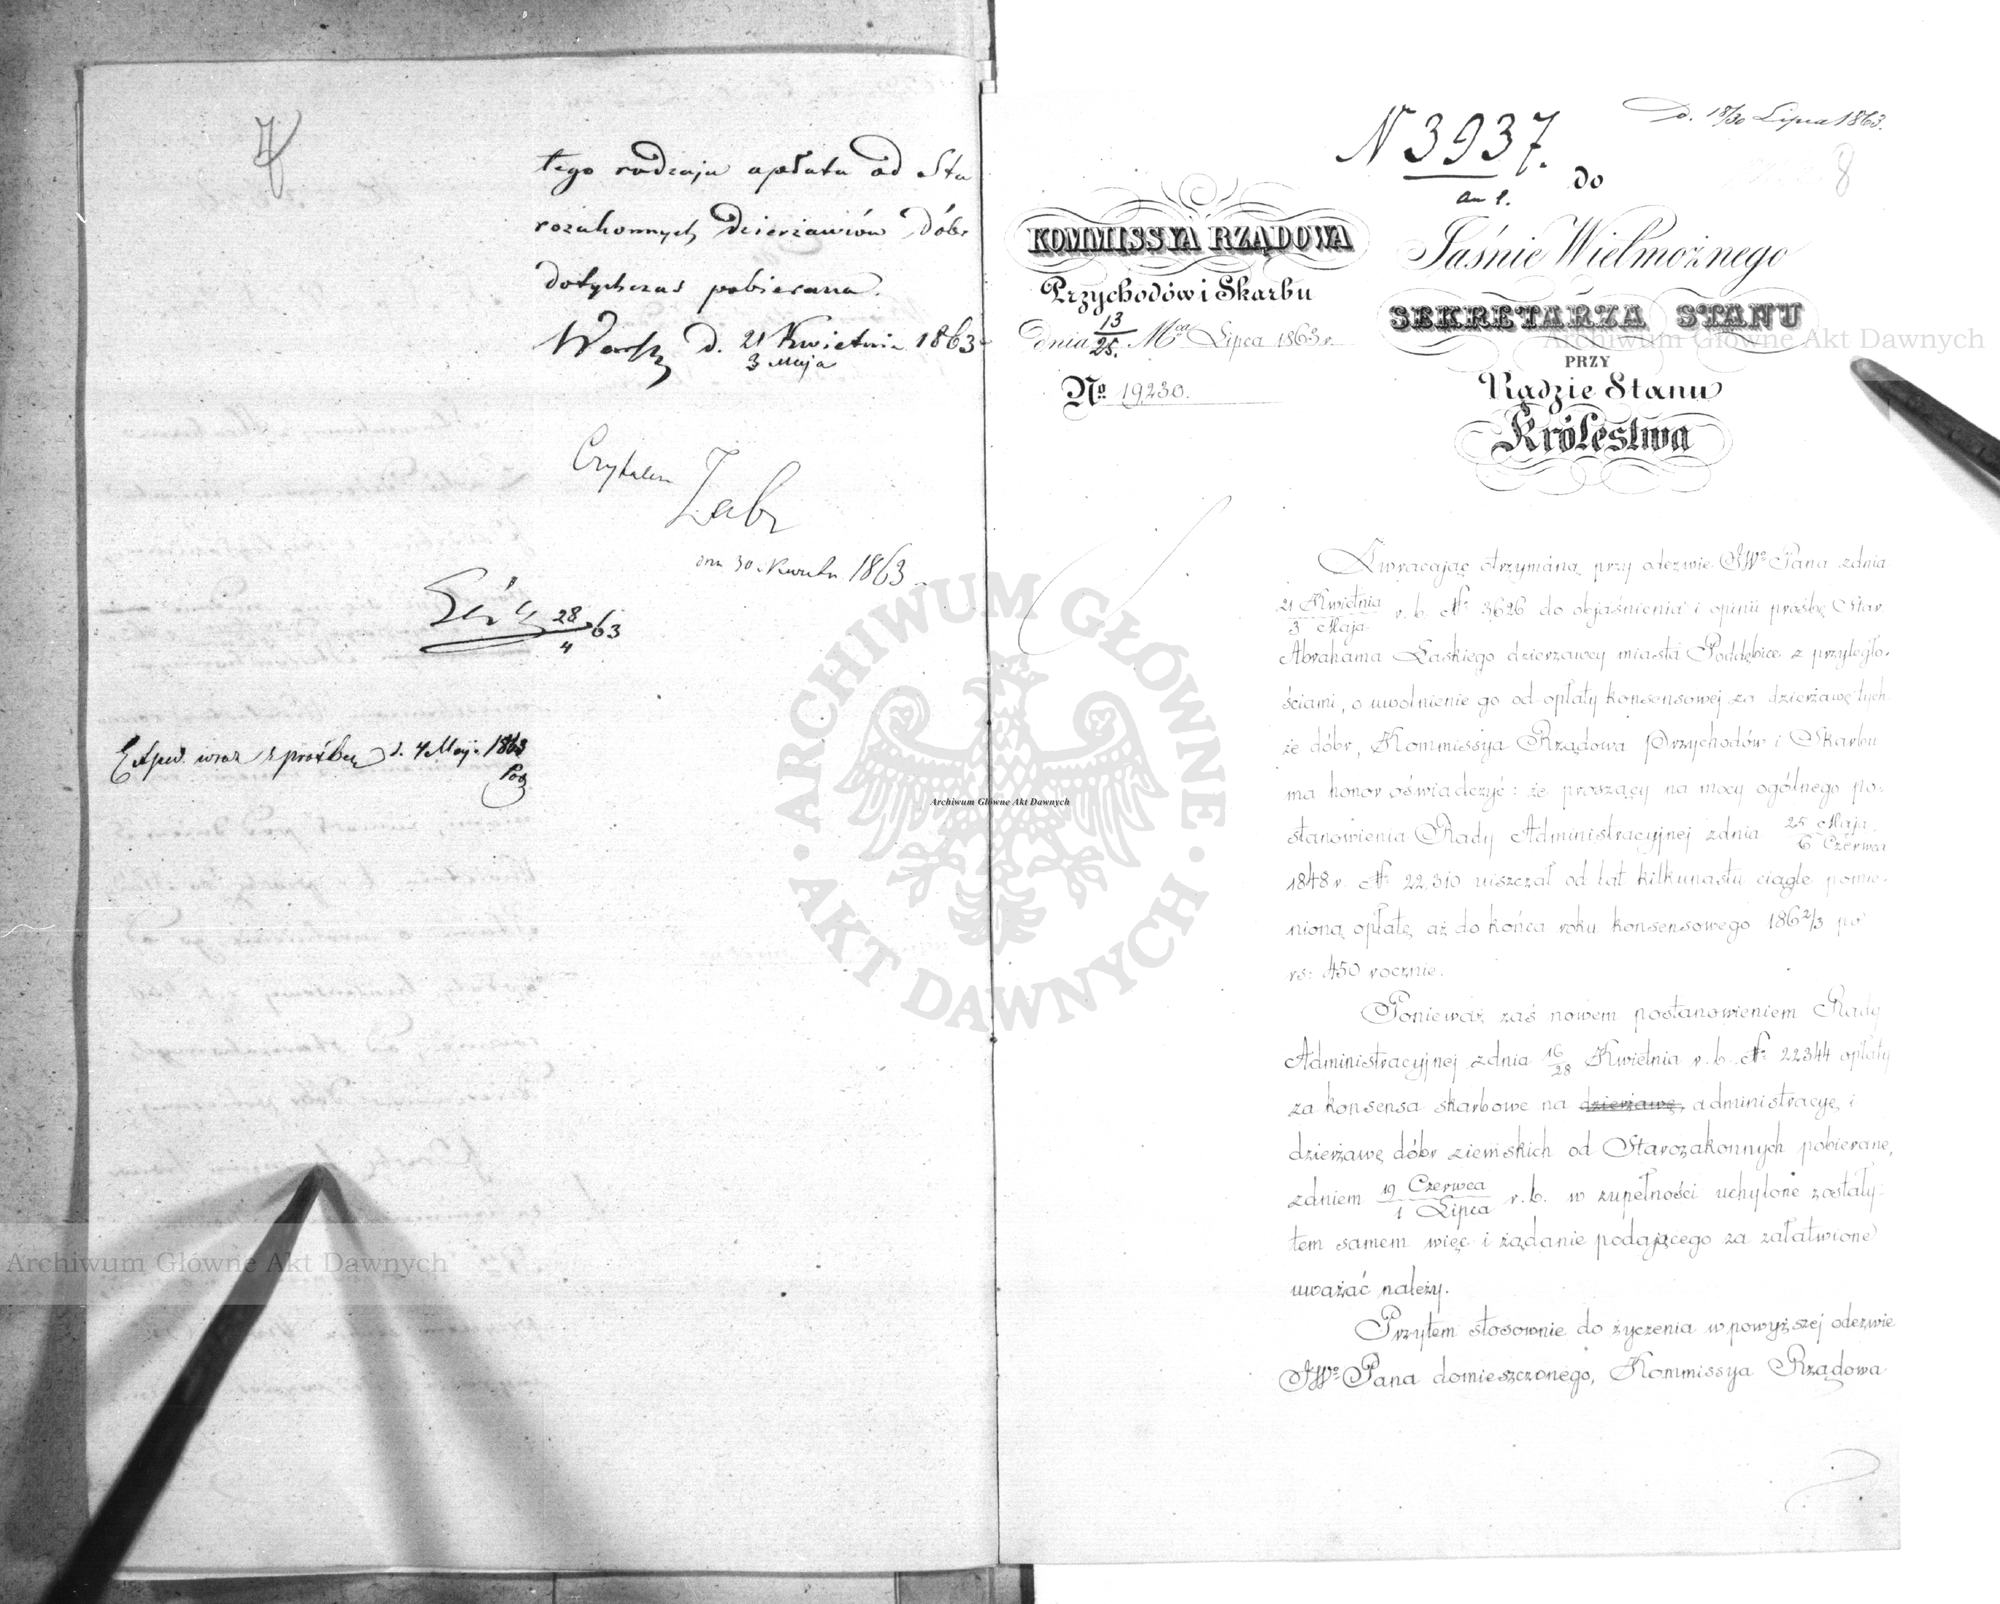 tego rodzaju opłata od Sta
rozakonnych Dzierżawców Dóbr
dotychczas pobierana.
Warsz d. 21 Kwietnia 1863
3 Maja
Czytałem
dnia 30 Kwietn 1863
28/4 63
Exped. wraz z prośbą d. 4 Maja 1863
N 3937.
D. 18/30 Lipca 1863.
8
do
KOMMISSYA RZĄDOWA
Przychodów i Skarbu
dnia 13/25. Mca Lipca 1863 r.
No 19230.
Jaśnie Wielmożnego
SEKRETARZA STANU
PRZY
Radzie Stanu
Królestwa
Zwracając otrzymaną przy odezwie JWo Pana z dnia
21 Kwietnia / 3 Maja r. b. No 3626 do objaśnienia i opinii prośbę Star.
Abrahama Łaskiego dzierżawcy miasta Poddębice z przyległo-
ściami, o uwolnienie go od opłaty konsensowej za dzierżawę tych-
że dóbr, Kommissya Rządowa Przychodów i Skarbu
ma honor oświadczyć: że proszący na mocy ogólnego po-
stanowienia Rady Administracyjnej z dnia 25 Maja / 6 Czerwca
1848 r. No 22,310 uiszczał od lat kilkunastu ciągle pomie-
nioną opłatę aż do końca roku konsensowego 186 2/3 po
rs: 450 rocznie.
Ponieważ zaś nowem postanowieniem Rady
Administracyjnej z dnia 16/28 Kwietnia r. b. No 22344 opłaty
za konsensa skarbowe na dzierżawę, administracyę i
dzierżawę dóbr ziemskich od Starozakonnych pobierane,
z dniem 19 Czerwca / 1 Lipca r. b. w zupełności uchylone zostały:
tem samem więc i żądanie podającego za załatwione
uważać należy.
Przytem stosownie do życzenia w powyższej odezwie
JWo Pana domieszczonego, Kommissya Rządowa
Archiwum Główne Akt Dawnych
Archiwum Główne Akt Dawnych
Archiwum Główne Akt Dawnych
ARCHIWUM GŁÓWNE
AKT DAWNYCH